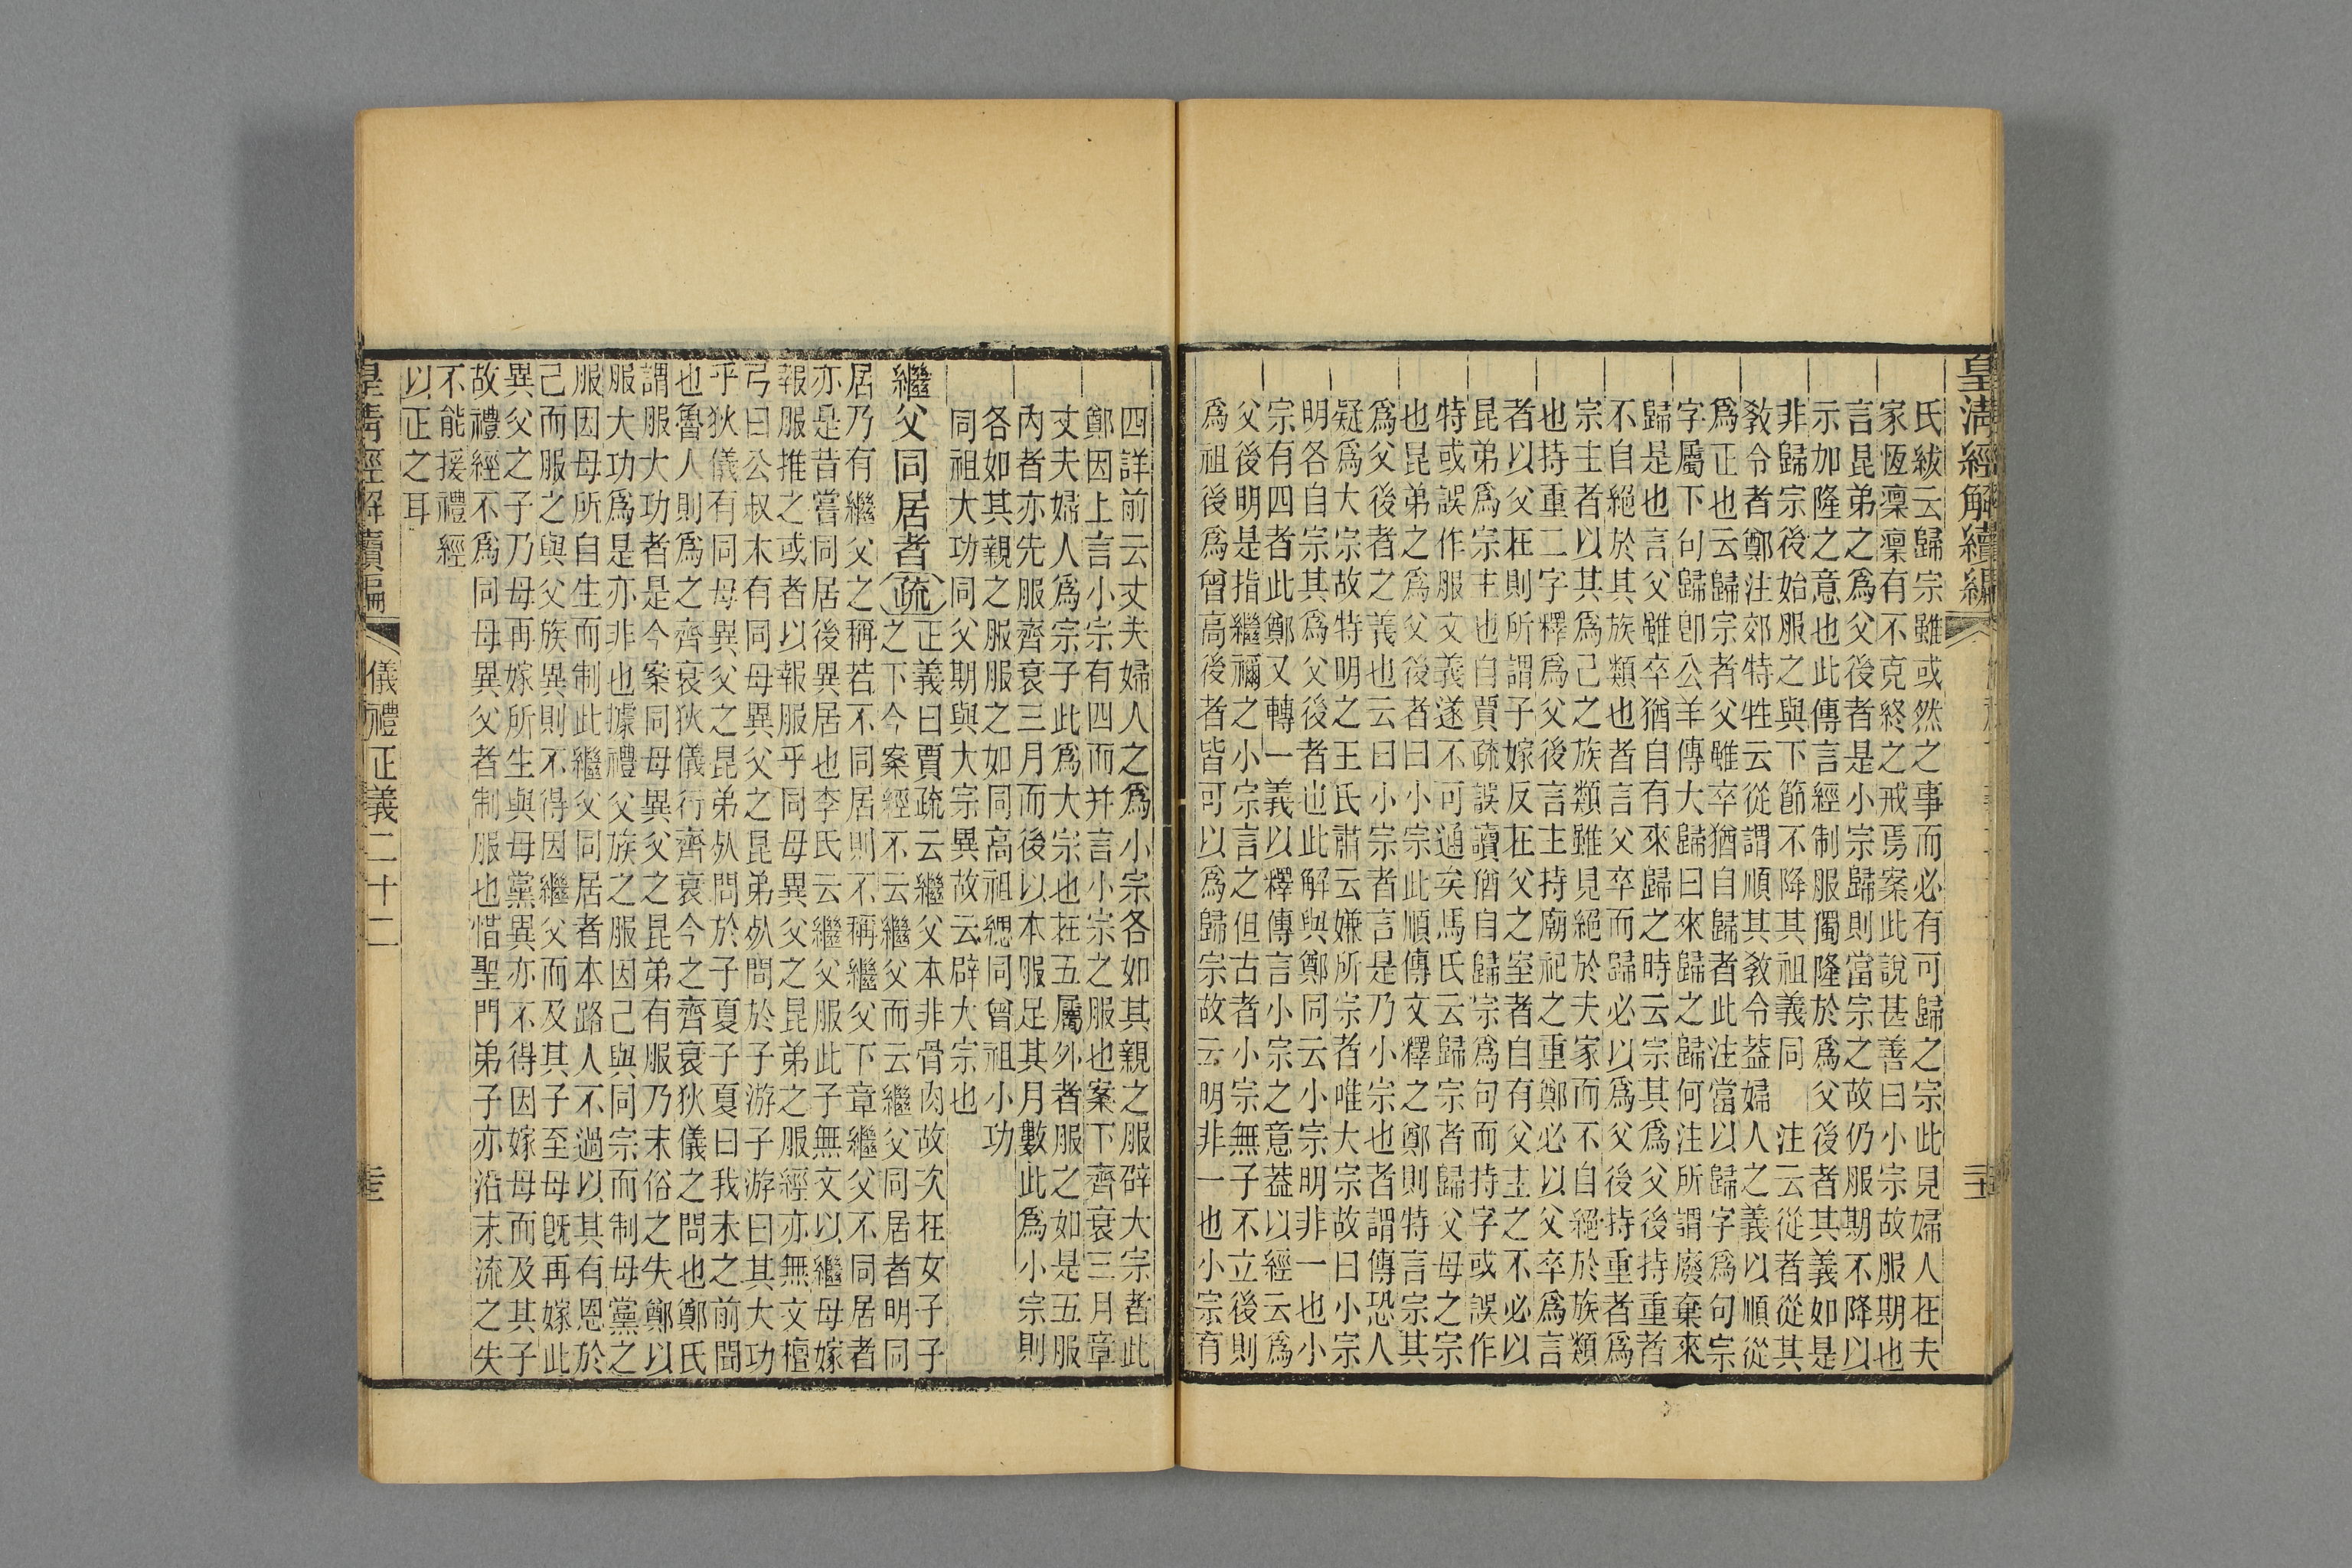 皇淸經解續編
氏紱云歸宗雖或然之事而必有可歸之宗此見婦人在夫
家恆凜凜有不克終之戒焉案此說甚善曰小宗故服期也
言昆弟之爲父後者是小宗歸則當宗之故仍服期不降以
示加隆之意也此傳言經制服獨隆於爲父後者其義如是
非歸宗後始服之與下節不降其祖義同 注云從者從其
敎令者鄭注郊特牲云從謂順其敎令葢婦人之義以順從
爲正也云歸宗者父雖卒猶自歸者此注當以歸字爲句宗
字屬下句歸卽公羊傳大歸曰來歸之歸何注所謂廢棄來
歸是也言父雖卒猶自有來歸之時云宗其爲父後持重者
不自絕於其族類也者言父卒而歸必以爲父後持重者爲
宗主者以其爲己之族類雖見絕於夫家而不自絕於族類
也持重二字釋爲父後言主持廟祀之重鄭必以父卒爲言
者以父在則所謂子嫁反在父之室者自有父主之不必以
昆弟爲宗主也自賈疏誤讀猶自歸宗爲句而持字或誤作
特或誤作服文義遂不可通矣馬氏云歸宗者歸父母之宗
也昆弟之爲父後者曰小宗此順傳文釋之鄭則特言宗其
爲父後者之義也云曰小宗者言是乃小宗也者謂傳恐人
疑爲大宗故特明之王氏肅云嫌所宗者唯大宗故曰小宗
明各自宗其爲父後者也此解與鄭同云小宗明非一也小
宗有四者此鄭又轉一義以釋傳言小宗之意葢以經云爲
父後明是指繼禰之小宗言之但古者小宗無子不立後則
爲祖後爲曾高後者皆可以爲歸宗故云明非一也小宗有
四詳前云丈夫婦人之爲小宗各如其親之服辟大宗者此
鄭因上言小宗有四而并言小宗之服也案下齊衰三月章
丈夫婦人爲宗子此爲大宗也在五屬外者服之如是五服
內者亦先服齊衰三月而後以本服足其月數此爲小宗則
各如其親之服服之如同高祖緦同曾祖小功
同祖大功同父期與大宗異故云辟大宗也
繼父同居者疏正義曰賈疏云繼父本非骨肉故次在女子子
之下今案經不云繼父而云繼父同居者明同
居乃有繼父之稱若不同居則不稱繼父下章繼父不同居者
亦是昔嘗同居後異居也李氏云繼父服此子無文以繼母嫁
報服推之或者以報服乎同母異父之昆弟之服經亦無文檀
弓曰公叔木有同母異父之昆弟死問於子游子游曰其大功
乎狄儀有同母異父之昆弟死問於子夏子夏曰我未之前聞
也魯人則爲之齊衰狄儀行齊衰今之齊衰狄儀之問也鄭氏
謂服大功者是今案同母異父之昆弟有服乃末俗之失鄭以
服大功爲是亦非也據禮父族之服因己與同宗而制母黨之
服因母所自生而制此繼父同居者本路人不過以其有恩於
己而服之與父族異則不得因繼父而及其子至母旣再嫁此
異父之子乃母再嫁所生與母黨異亦不得因嫁母而及其子
故禮經不爲同母異父者制服也惜聖門弟子亦沿末流之失
不能援禮經
以正之耳
皇淸經解續編
儀禮正義二十二